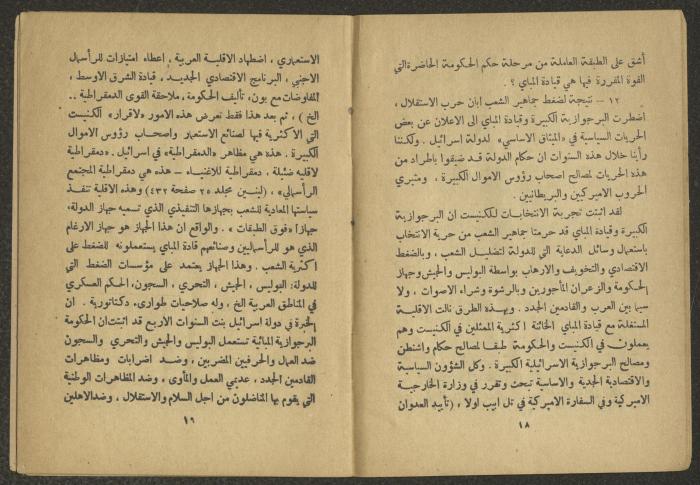 أشق على الطبقة العاملة من مرحلة حكم الحكومة الحاضرة التي
القوة المقررة فيها هي قيادة المباي ؟ .
١٢ — نتيجة لضغط جماهير الشعب ابان حرب الاستقلال ،
اضطرت البرجوازية الكبيرة وقيادة المباي الى الاعلان عن بعض
الحريات السياسية في «الميثاق الاساسي» لدولة اسرائيل . ولكننا
رأينا خلال هذه السنوات ان حكام الدولة قد ضيقوا باطراد من
هذه الحريات لمصالح اصحاب رؤوس الاموال الكبيرة ، ومثيري
الحروب الاميركيين والبريطانيين .
لقد اثبتت تجربة الانتخابات للكنيست ان البرجوازية
الكبيرة وقيادة المباي قد حرمتا جماهير الشعب من حرية الانتخاب
باستعمال وسائل الدعاية التي للدولة لتضليل الشعب ، وبالضغط
الاقتصادي والتخويف والارهاب بواسطة البوليس والجيش وجهاز
الحكومة والزعران المأجورين وبالرشوة وشراء الاصوات ، ولا
سيما بين العرب والقادمين الجدد . وبهذه الطرق نالت الاقلية
المستغلة مع قيادة المباي الخائنة اكثرية الممثلين في الكنيست وهم
يعملون في الكنيست والحكومة طبقا لمصالح حكام واشنطن
ومصالح البرجوازية الاسرائيلية الكبيرة . وكل الشؤون السياسية
والاقتصادية الجدية والاساسية تبحث وتقرر في وزارة الخارجية
الاميركية وفي السفارة الاميركية في تل ابيب اولا ، (تأييد العدوان
١٨
الاستعماري ، اضطهاد الاقلية العربية ، اعطاء امتيازات للرأسمال
الاجنبي ، البرنامج الاقتصادي الجديد ، قيادة الشرق الاوسط ،
المفاوضات مع بون ، تأليف الحكومة ، ملاحقة القوى الدمقراطية ..
الخ ) ، ثم بعد هذا فقط تعرض هذه الامور «لاقرار» الكنيست
التي الاكثرية فيها لصنائع الاستعمار واصحاب رؤوس الاموال
الكبيرة . هذه هي مظاهر «الدمقراطية» في اسرائيل . «دمقراطية
لاقلية ضئيلة ، دمقراطية للاغنياء — هذه هي دمقراطية المجتمع
الرأسمالي» ، (لينين مجلد ٢٥ صفحة ٤٣٢) وهذه الاقلية تنفذ
سياستها المعادية للشعب بجهازها التنفيذي الذي تسميه جهاز الدولة،
جهازا «فوق الطبقات» . والواقع ان هذا الجهاز هو جهاز الارغام
الذي هو للرأسماليين وصنائعهم قادة المباي يستعملونه للضغط على
اكثرية الشعب . وهذا الجهاز يعتمد على مؤسسات الضغط التي
للدولة: البوليس ، الجيش ، التحري ، السجون، الحكم العسكري
في المناطق العربية الخ ، وله صلاحيات طوارىء دكتاتورية . ان
الخبرة في دولة اسرائيل بنت السنوات الاربع قد اثبتت ان الحكومة
البرجوازية المبائية تستعمل البوليس والجيش والتحري والسجون
ضد العمال والحرفيين المضربين ، وضد اضرابات ومظاهرات
القادمين الجدد ، عديمي العمل والمأوى ، وضد المظاهرات الوطنية
التي يقوم بها المناضلون من اجل السلام والاستقلال ، وضد الاهلين
١٩